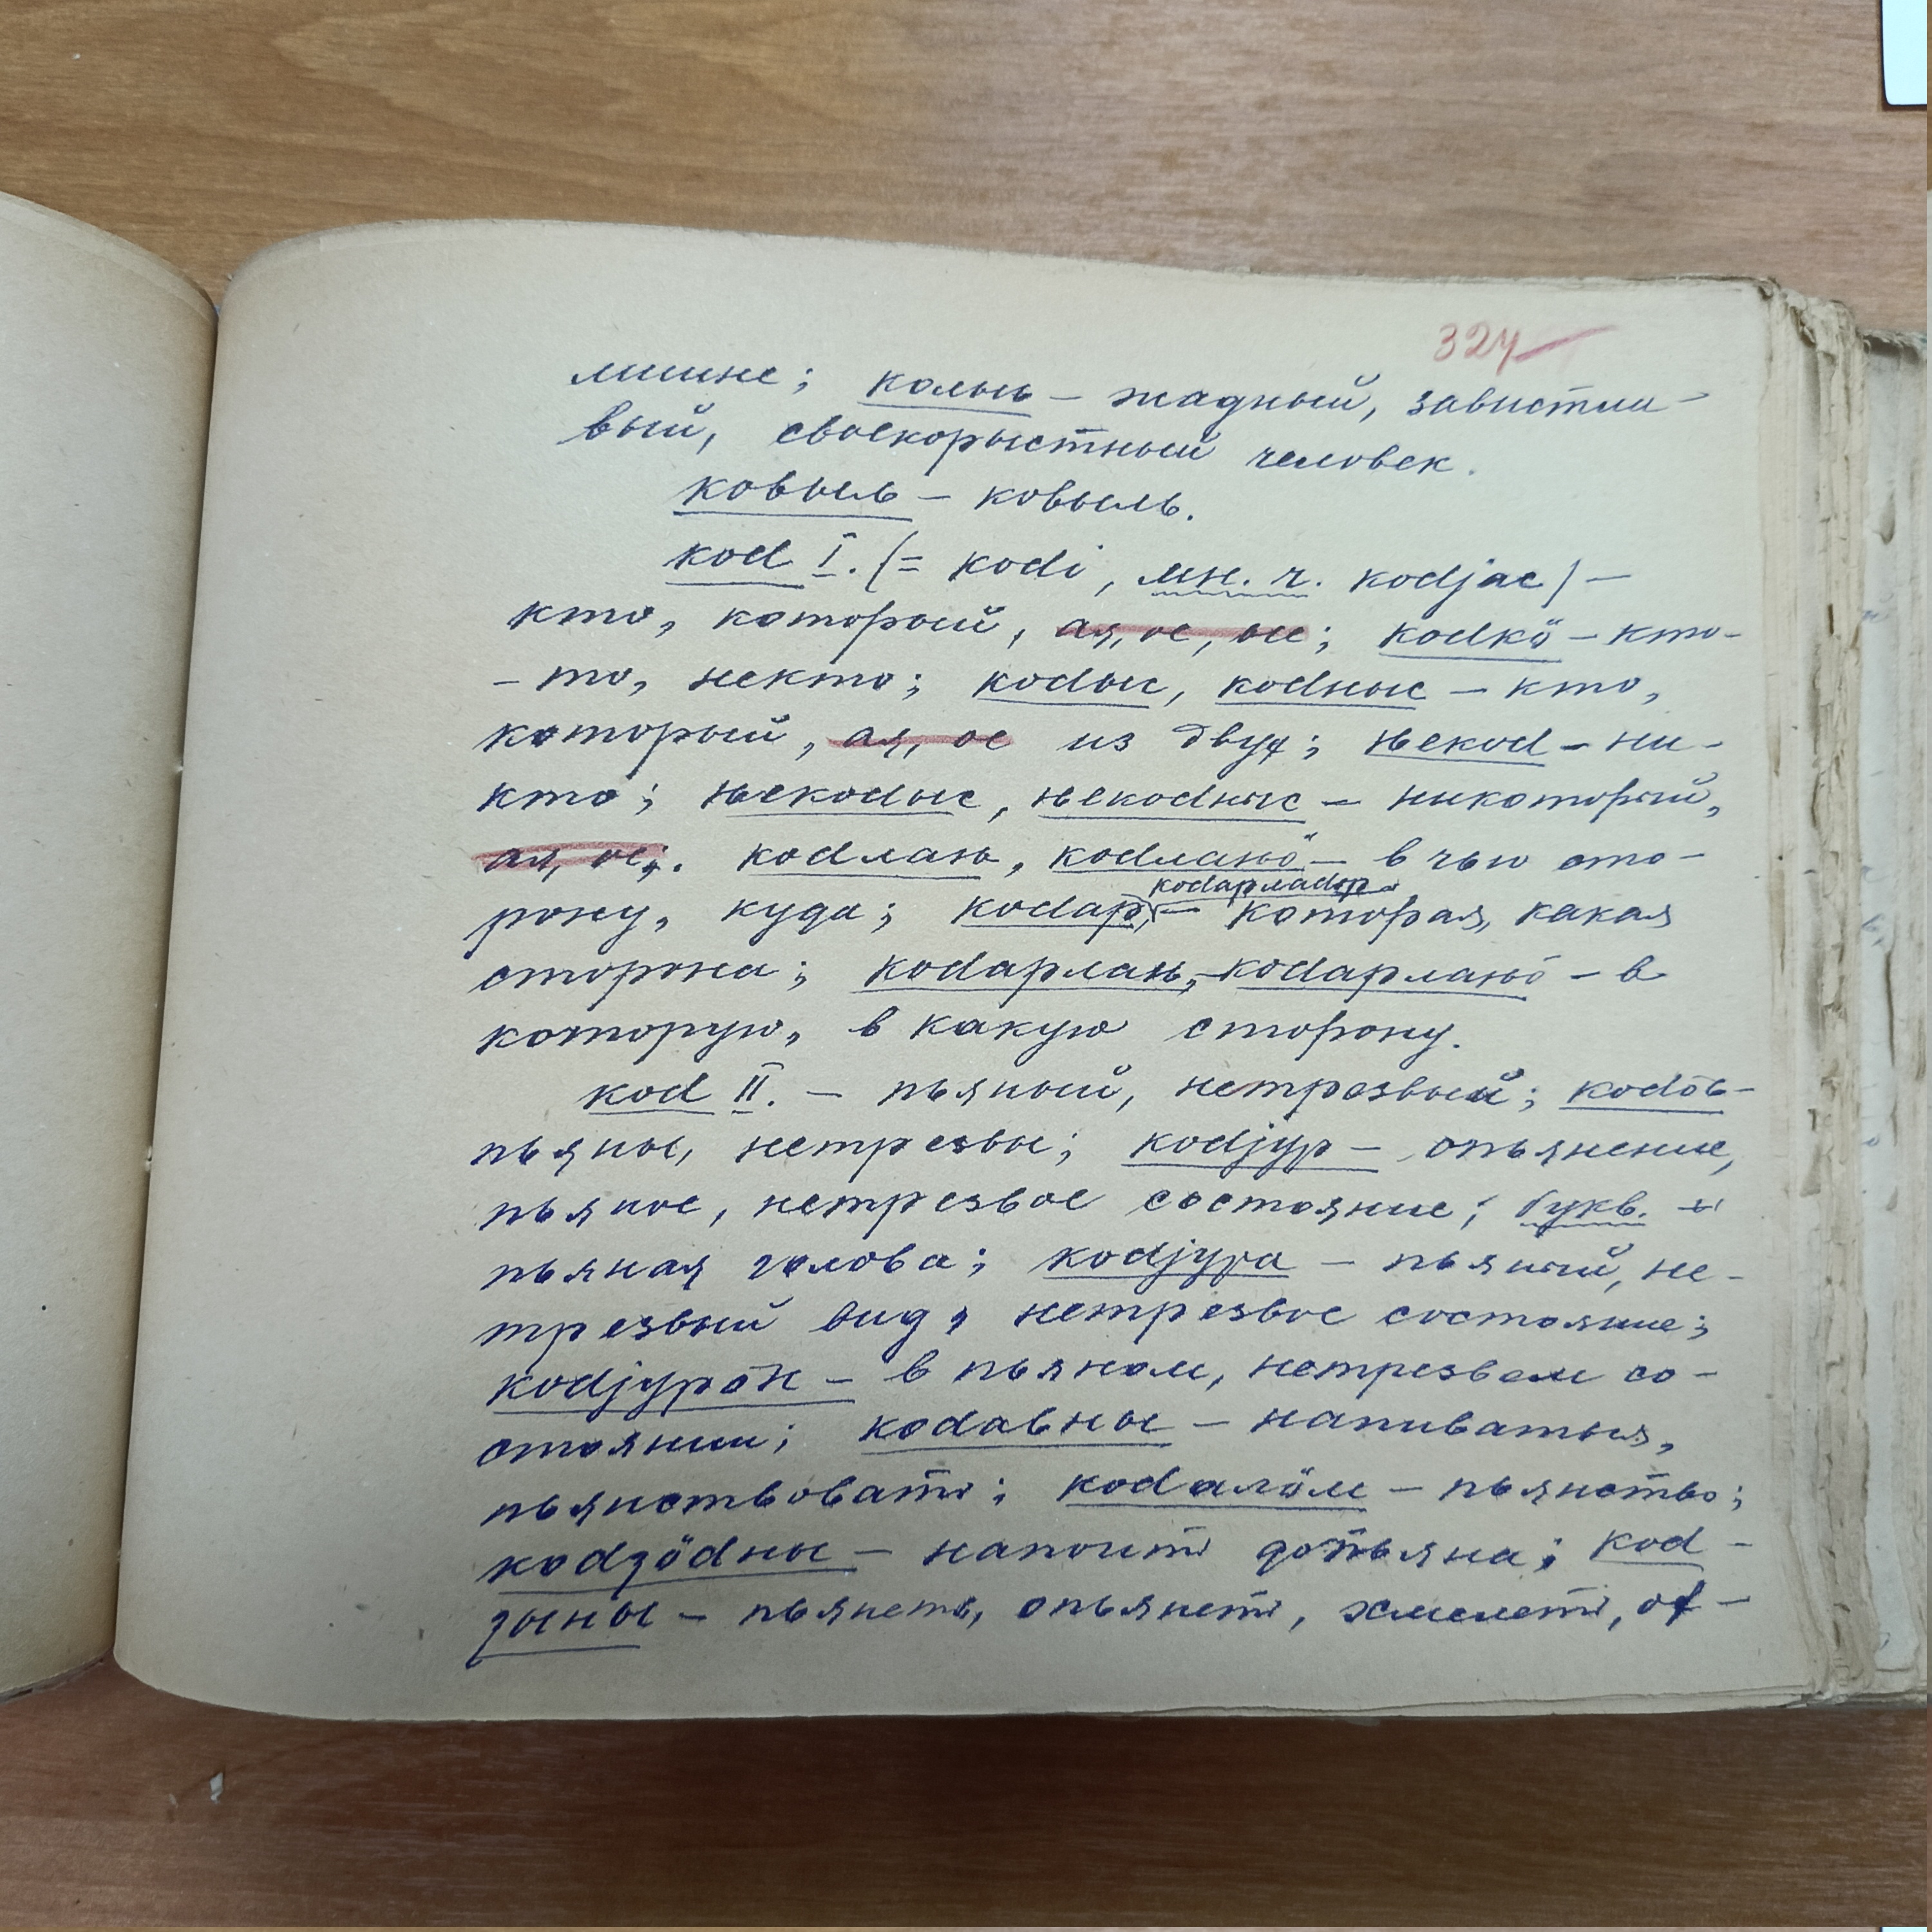 324
мшине; колыь – жадный, завистли-
вый, своекорыстный человек.
ковыль – ковыль.
коd I. (= kodi, мн. ч. kodjac) –
кто, который, ая, ое, ые; коdкӧ – кто-
– то, некто; коdыс, коdныс – кто,
который, ая, ое из двух; њекоd – ни-
кто; њекоdыс, њекоdныс – никоторый,
ая, ое;. коdлањ, коdлањӧ – в чью сто-
коdарлаdор
рону, куда; коdар, – которая, какая
сторона; коdарлањ, – коdарлањӧ – в
которую, в какую сторону.
коd II. – пьяный, нетрезвый; коdӧԍ –
пьяны, нетрезвы; коdjур – опьянение,
пьяное, нетрезвое состояние; букв.
пьяная голова; коdjура – пьяный, не-
трезвый вид, нетрезвое состояние;
коdjурӧн – в пьяном, нетрезвом со-
стоянии; коdавны – напиваться,
пьянствовать; коdалӧм – пьянство;
коdӡӧdны – напоить допьяна; коd-
ӡыны – пьянеть, опьянеть, хмелеть, ох-